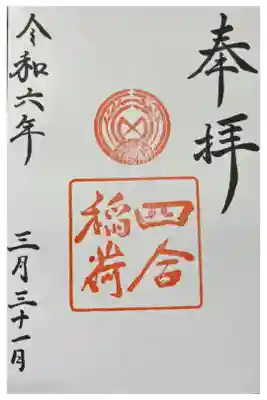 奉拝
四合
稲荷
令和六年
三月三十一日